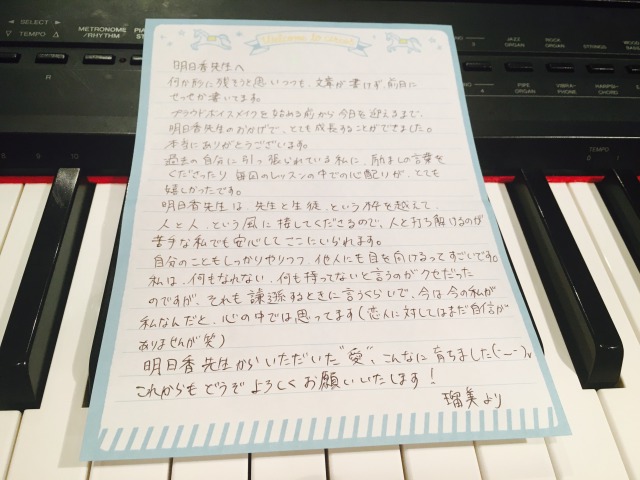 SELECT
TEMPO
METRONOME
/RHYTHM
JAZZ
ORGAN
ROCK
ORGAN
STRINGS
PIPE
ORGAN
VIBRA-
PHONE
HARPSI-
CHORD
TEMPO
明日香先生へ
何か形に残そうと思いつつも、文章が書けず、前日に
せっせか書いてます。
プラウドボイスメイクを始める前から今日を迎えるまで、
明日香先生のおかげで、とても成長することができました。
本当にありがとうございます。
過去の自分に引っ張られている私に、励ましの言葉を
くださったり、毎回のレッスンの中での心配りが、とても
嬉しかったです。
明日香先生は、先生と生徒、という枠を越えて、
人と人、という風に接してくださるので、人と打ち解けるのが
苦手な私でも安心してここにいられます。
自分のこともしっかりやりつつ、他人にも目を向けるってすごいです。
私は、何もなれない、何も持ってないと言うのがクセだった
のですが、それも謙遜するときに言うくらいで、今は今の私が
私なんだと、心の中では思ってます(恋人に対してはまだ自信が
ありませんが笑)
明日香先生からいただいた”愛”、こんなに育ちました(-ー-)v
これからもどうぞよろしくお願いいたします!
瑠美より